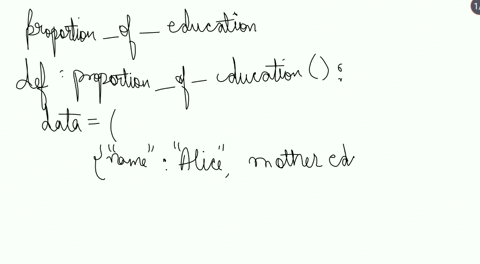 proportion_of_education
def : proportion_of_education():
data = (
{"name" : "Alice", mother ed